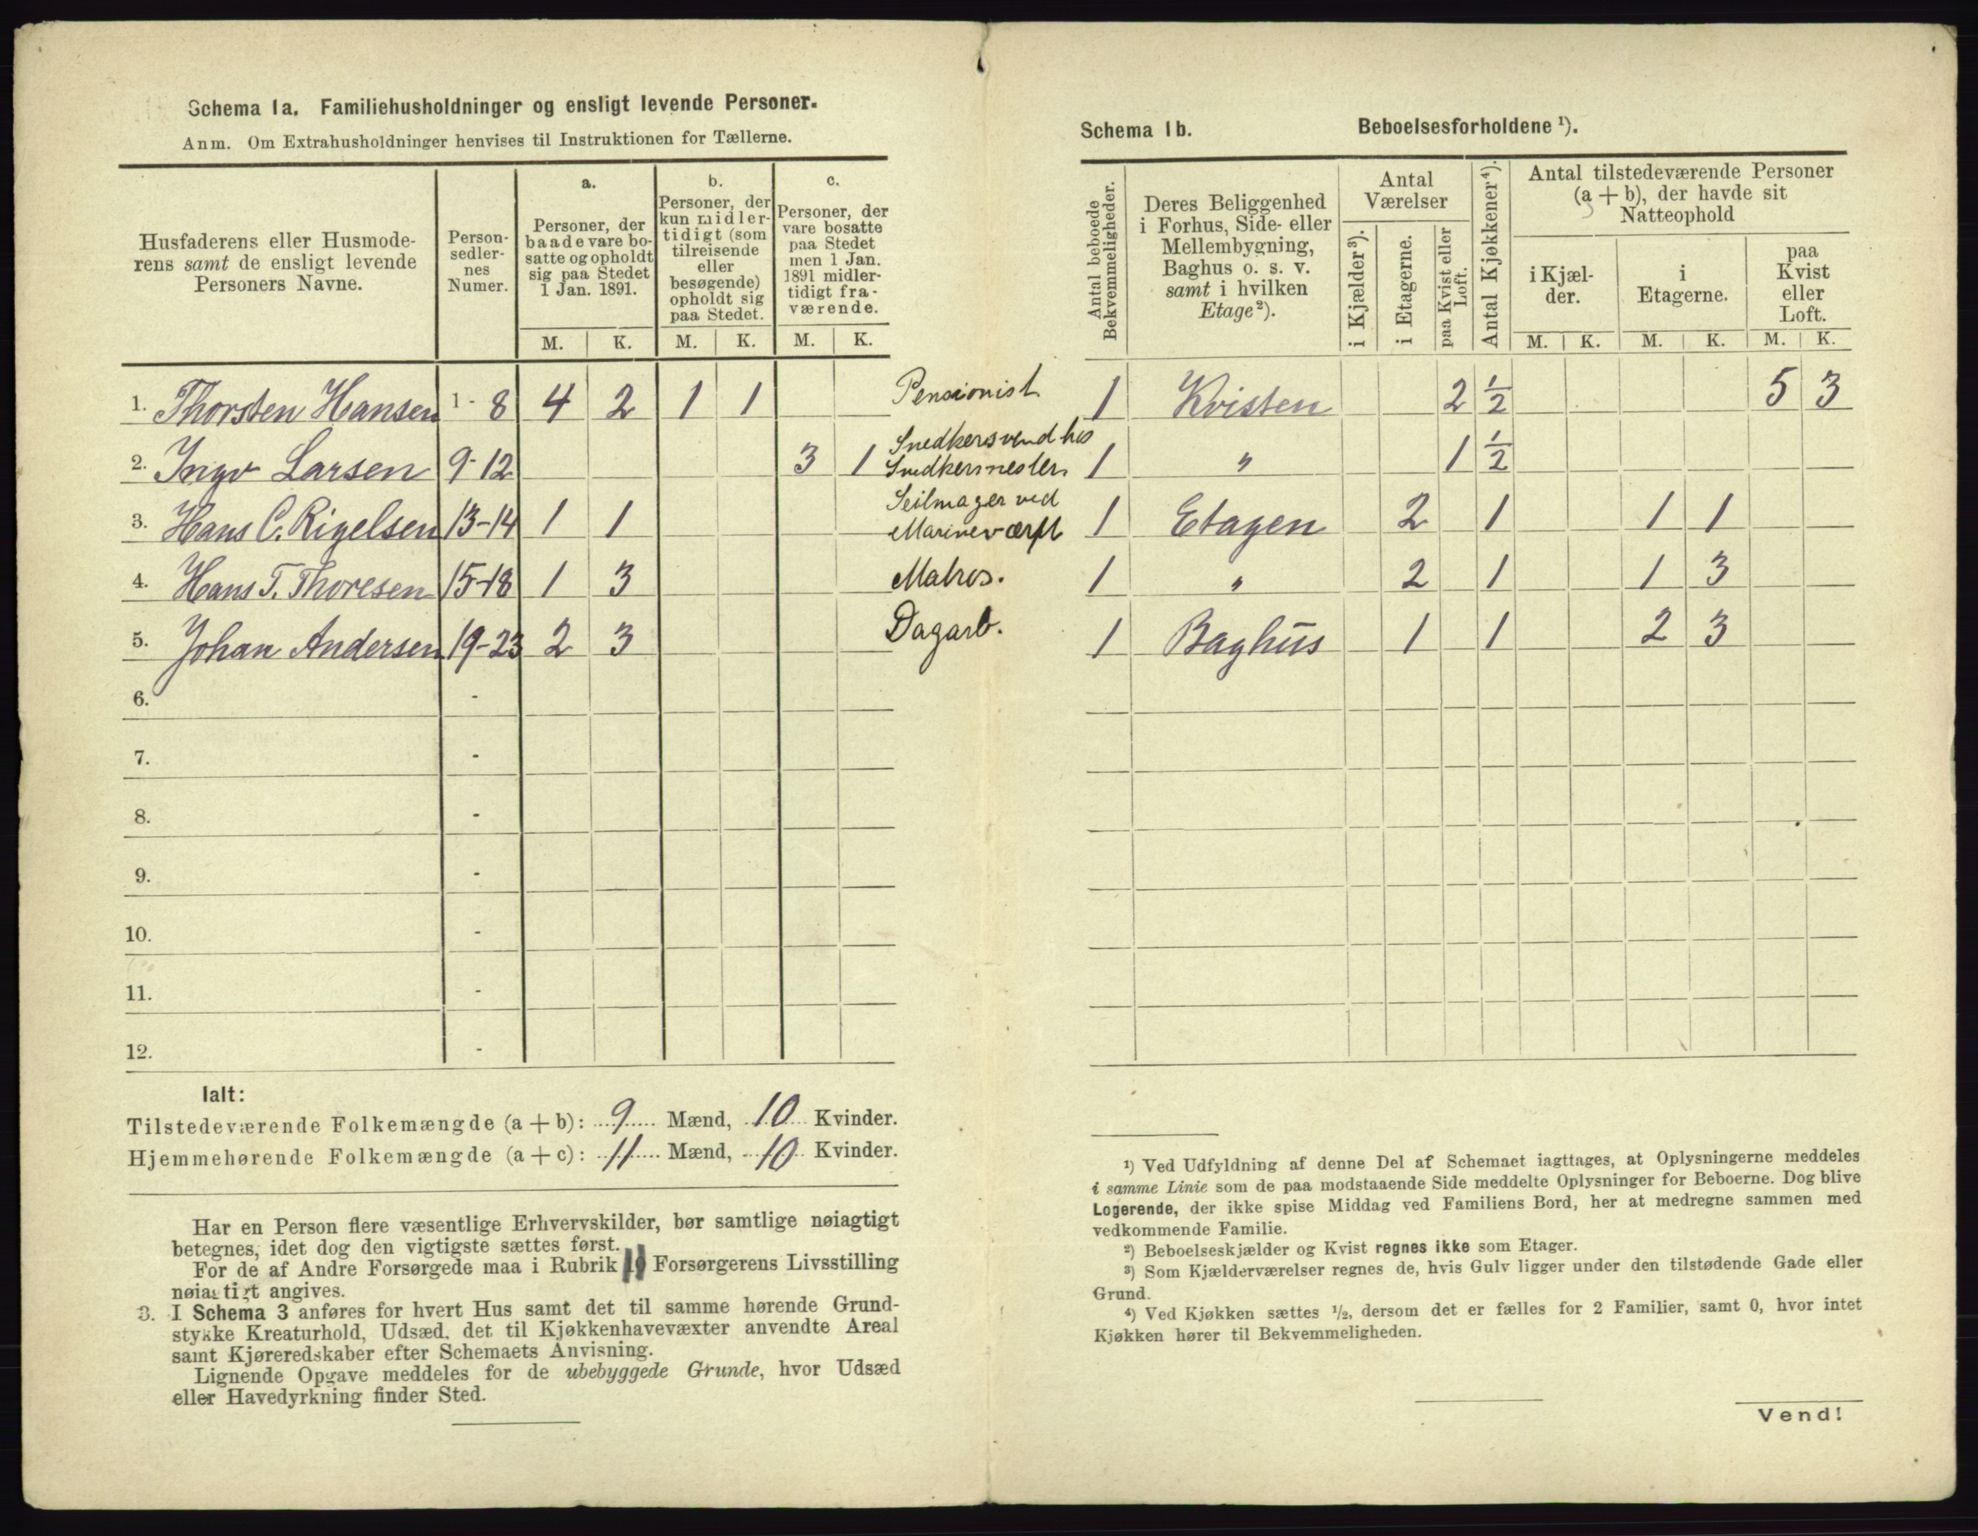 Schema 1a. Familiehusholdninger og ensligt levende Personer.
Anm. Om Extrahusholdninger henvises til Instruktionen for Tællerne.
Husfaderens eller Husmode-
rens samt de ensligt levende
Personers Navne.
Person-
sedler-
nes
Numer.
a.
Personer, der
baade vare bo-
satte og opholdt
sig paa Stedet
1 Jan. 1891.
b.
Personer, der
kun midler-
tidigt (som
tilreisende
eller
besøgende)
opholdt sig
paa Stedet.
c.
Personer, der
vare bosatte
paa Stedet
men 1 Jan.
1891 midler-
tidigt fra-
værende.
M. K. M. K. M. K.
1. Thorsten Hansen 1 - 8 4 2 1 1 Pensionist
2. Ingv Larsen 9-12 3 1 Snedkersvend hos
Snedkermester
3. Hans C. Rigelsen 13-14 1 1 Seilmager ved
Marineværft
4. Hans T. Thoresen 15-18 1 3 Matros.
5. Johan Andersen 19-23 2 3 Dagarb.
6. -
7. -
8. -
9. -
10. -
11. -
12. -
Ialt:
Tilstedeværende Folkemængde (a + b): 9 Mænd, 10 Kvinder.
Hjemmehørende Folkemængde (a + c): 11 Mænd, 10 Kvinder.
Har en Person flere væsentlige Erhvervskilder, bør samtlige nøiagtigt
betegnes, idet dog den vigtigste sættes først.
For de af Andre Forsørgede maa i Rubrik 10 Forsørgerens Livsstilling
nøiagtigt angives.
3. I Schema 3 anføres for hvert Hus samt det til samme hørende Grund-
stykke Kreaturhold, Udsæd, det til Kjøkkenhavevæxter anvendte Areal
samt Kjøreredskaber efter Schemaets Anvisning.
Lignende Opgave meddeles for de ubebyggede Grunde, hvor Udsæd
eller Havedyrkning finder Sted.
Schema 1b. Beboelsesforholdene ¹).
Antal beboede
Bekvemmeligheder.
Deres Beliggenhed
i Forhus, Side- eller
Mellembygning,
Baghus o. s. v.
samt i hvilken
Etage²).
Antal
Værelser
i Kjælder³).
i Etagerne.
paa Kvist eller
Loft.
Antal Kjøkkener⁴).
Antal tilstedeværende Personer
(a + b), der havde sit
Natteophold
i Kjæl-
der.
i
Etagerne.
paa
Kvist
eller
Loft.
M. K. M. K. M. K.
1 Kvisten 2 ½ 5 3
1 " 1 ½
1 Etagen 2 1 1 1
1 " 2 1 1 3
1 Baghus 1 1 2 3
¹) Ved Udfyldning af denne Del af Schemaet iagttages, at Oplysningerne meddeles
i samme Linie som de paa modstaaende Side meddelte Oplysninger for Beboerne. Dog blive
Logerende, der ikke spise Middag ved Familiens Bord, her at medregne sammen med
vedkommende Familie.
²) Beboelseskjælder og Kvist regnes ikke som Etager.
³) Som Kjælderværelser regnes de, hvis Gulv ligger under den tilstødende Gade eller
Grund.
⁴) Ved Kjøkken sættes ½, dersom det er fælles for 2 Familier, samt 0, hvor intet
Kjøkken hører til Bekvemmeligheden.
Vend!